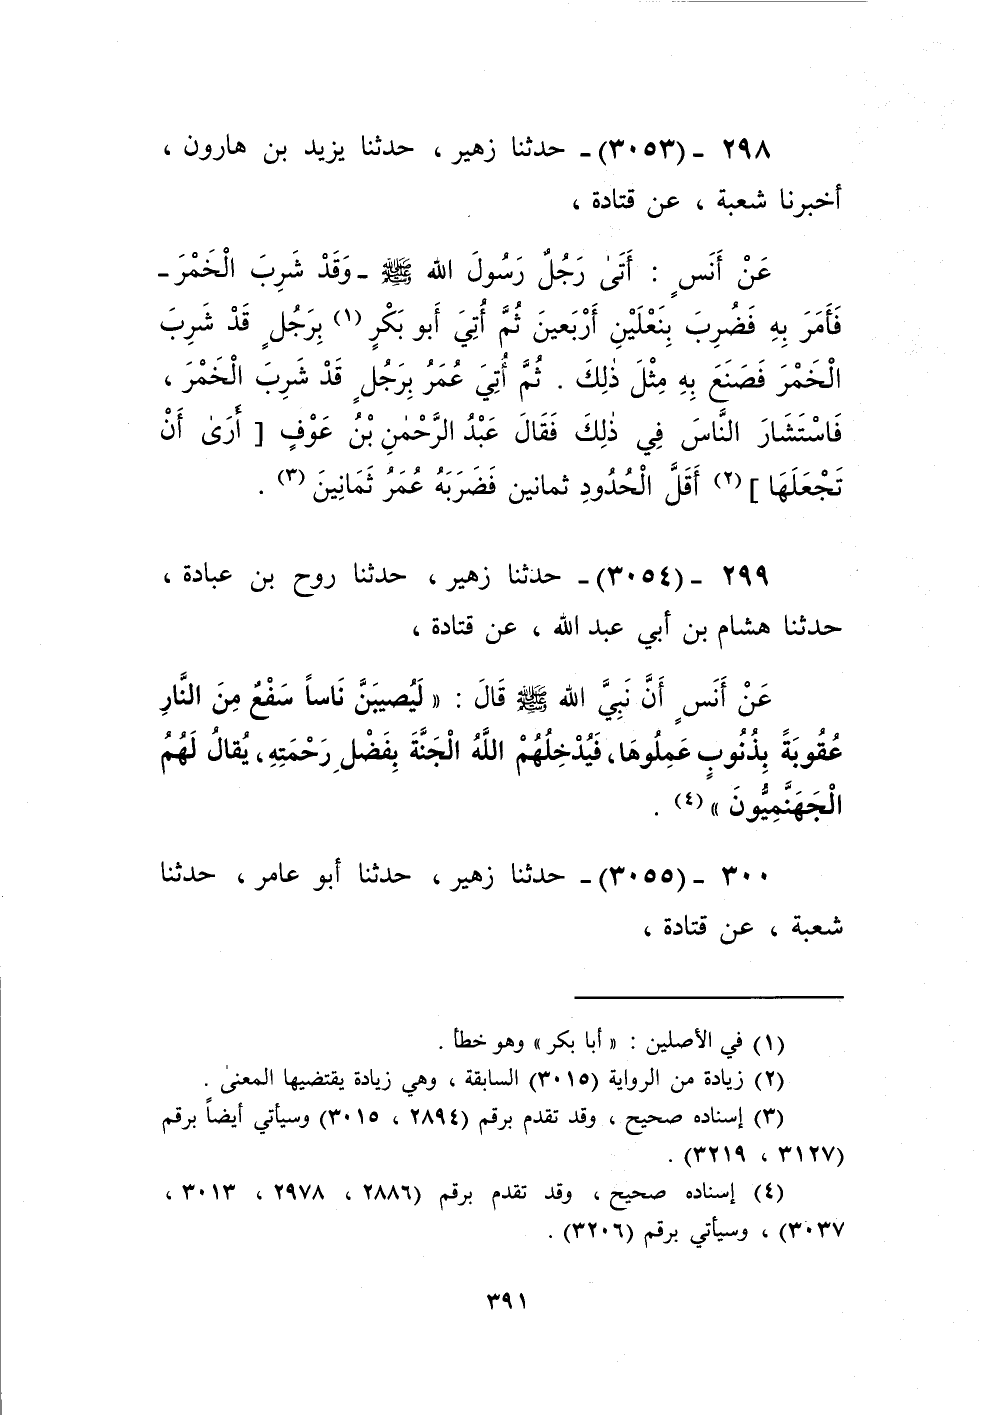 ٢٩٨ ـ (٣٠٥٣)ـ حدثنا زهير ، حدثنا يزيد بن هارون ،
أخبرنا شعبة ، عن قتادة ،
عَنْ أَنَسٍ : أَتَىٰ رَجُلٌ رَسُولَ الله ﷺ ـ وَقَدْ شَرِبَ الْخَمْرَ ـ
فَأَمَرَ بِهِ فَضُرِبَ بِنَعْلَيْنِ أَرْبَعينَ ثُمَّ أُتِيَ أَبو بَكْرٍ (١) بِرَجُلٍ قَدْ شَرِبَ
الْخَمْرَ فَصَنَعَ بِهِ مِثْلَ ذٰلِكَ . ثُمَّ أُتِيَ عُمَرُ بِرَجُلٍ قَدْ شَرِبَ الْخَمْرَ ،
فَاسْتَشَارَ النَّاسَ فِي ذٰلِكَ فَقَالَ عَبْدُ الرَّحْمٰنِ بْنُ عَوْفٍ [ أَرَىٰ أَنْ
تَجْعَلَهَا ] (٢) أَقَلَّ الْحُدُودِ ثمانين فَضَرَبَهُ عُمَرُ ثَمَانِينَ (٣) .
٢٩٩ ـ (٣٠٥٤)ـ حدثنا زهير ، حدثنا روح بن عبادة ،
حدثنا هشام بن أبي عبد الله ، عن قتادة ،
عَنْ أَنَسٍ أَنَّ نَبِيَّ الله ﷺ قَالَ : « لَيُصيبَنَّ نَاساً سَفْعٌ مِنَ النَّارِ
عُقُوبَةً بِذُنُوبٍ عَمِلُوهَا، فَيُدْخِلُهُمْ اللَّهُ الْجَنَّةَ بِفَضْلِ رَحْمَتِهِ، يُقالُ لَهُمُ
الْجَهَنَّمِيُّونَ » (٤) .
٣٠٠ ـ (٣٠٥٥)ـ حدثنا زهير ، حدثنا أبو عامر ، حدثنا
شعبة ، عن قتادة ،
(١) في الأصلين : « أبا بكر » وهو خطأ .
(٢) زيادة من الرواية (٣٠١٥) السابقة ، وهي زيادة يقتضيها المعنىٰ .
(٣) إسناده صحيح ، وقد تقدم برقم (٢٨٩٤ ، ٣٠١٥) وسيأتي أيضاً برقم
(٣١٢٧ ، ٣٢١٩) .
(٤) إسناده صحيح ، وقد تقدم برقم (٢٨٨٦ ، ٢٩٧٨ ، ٣٠١٣ ،
٣٠٣٧) ، وسيأتي برقم (٣٢٠٦) .
٣٩١